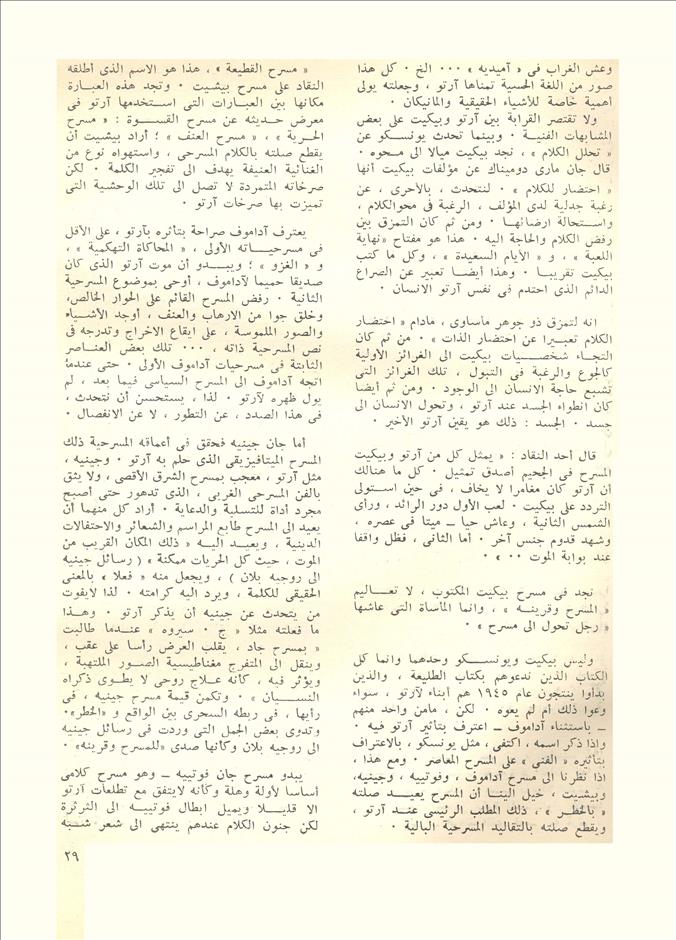 وعش الغراب فى « آميديه » ٠٠٠ الخ ٠ كل هذا
صور من اللغة الحسية تمناها آرتو ، وجعلته يولى
اهمية خاصة للأشياء الحقيقية والمانيكان ٠
ولا تقتصر القرابة بين آرتو وبيكيت على بعض
المشابهات الفنية ٠ وبينما تحدث يونسكو عن
« تحلل الكلام » ، نجد بيكيت ميالا الى محوه ٠
قال جان مارى دوميناك عن مؤلفات بيكيت أنها
« احتضار للكلام » ٠ لنتحدث ، بالأحرى ، عن
رغبة جدلية لدى المؤلف ، الرغبة فى محو الكلام ،
واستحالة ارضائها ٠ ومن ثم كان التمزق بين
رفض الكلام والحاجة اليه ٠ هذا هو مفتاح «نهاية
اللعبة » ، و « الأيام السعيدة » ، وكل ما كتب
بيكيت تقريبا ٠ وهذا أيضا تعبير عن الصراع
الدائم الذى احتدم فى نفس آرتو الانسان ٠
انه لتمزق ذو جوهر ماساوى ، مادام « احتضار
الكلام تعبيرا عن احتضار الذات » ٠ من ثم كان
التجاء شخصيات بيكيت الى الغرائز الأولية
كالجوع والرغبة فى التبول ، تلك الغرائز التى
تشبع حاجة الانسان الى الوجود ٠ ومن ثم أيضا
كان انطواء الجسد عند آرتو ، وتحول الانسان الى
جسد ٠ الجسد : ذلك هو يقين آرتو الأخير ٠
قال أحد النقاد : « يمثل كل من آرتو وبيكيت
المسرح فى الجحيم أصدق تمثيل ٠ كل ما هنالك
أن آرتو كان مغامرا لا يخاف ، فى حين استولى
التردد على بيكيت ٠ لعب الأول دور الرائد ، ورأى
الشمس الثانية ، وعاش حيا ــ ميتا فى عصره ،
وشهد قدوم جنس آخر ٠ أما الثانى ، فظل واقفا
عند بوابة الموت ٠٠ »
نجد فى مسرح بيكيت المكتوب ، لا تعاليم
« المسرح وقرينه » ، وانما المأساة التى عاشها
« رجل تحول الى مسرح » ٠
وليس بيكيت ويونسكو وحدهما وانما كل
الكتاب الذين ندعوهم بكتاب الطليعة ، والذين
بدأوا ينتجون عام ١٩٤٥ هم أبناء لآرتو ، سواء
وعوا ذلك أم لم يعوه ٠ لكن ، مامن واحد منهم
ــ باستثناء آداموف ــ اعترف بتأثير آرتو فيه ٠
واذا ذكر اسمه ، اكتفى ، مثل يونسكو ، بالاعتراف
بتأثيره « الفنى » على المسرح المعاصر ٠ ومع هذا ،
اذا نظرنا الى مسرح آداموف ، وفوتييه ، وجينيه،
وبيشيت ، خيل الينا أن المسرح يعيد صلته
« بالخطر » ، ذلك المطلب الرئيسى عند آرتو ،
ويقطع صلته بالتقاليد المسرحية البالية ٠
« مسرح القطيعة » ، هذا هو الاسم الذى أطلقه
النقاد على مسرح بيشيت ٠ وتجد هذه العبارة
مكانها بين العبارات التى استخدمها آرتو فى
معرض حديثه عن مسرح القسوة : « مسرح
الحرية » ، « مسرح العنف » ؛ أراد بيشيت أن
يقطع صلته بالكلام المسرحى ، واستهواه نوع من
الغنائية العنيفة يهدف الى تفجير الكلمة ٠ لكن
صرخاته المتمردة لا تصل الى تلك الوحشية التى
تميزت بها صرخات آرتو ٠
يعترف آداموف صراحة بتأثره بآرتو ، على الأقل
فى مسرحياته الأولى ، « المحاكاة التهكمية » ،
و « الغزو » ؛ ويبدو أن موت آرتو الذى كان
صديقا حميما لآداموف ، أوحى بموضوع المسرحية
الثانية ٠ رفض المسرح القائم على الحوار الخالص،
وخلق جوا من الارهاب والعنف ، أوجد الأشياء
والصور الملموسة ، على ايقاع الاخراج وتدرجه فى
نص المسرحية ذاته ، ٠٠٠ تلك بعض العناصر
الثابتة فى مسرحيات آداموف الأولى ٠ حتى عندما
اتجه آداموف الى المسرح السياسى فيما بعد ، لم
يول ظهره لآرتو ٠ لذا ، يستحسن أن نتحدث ،
فى هذا الصدد ، عن التطور ، لا عن الانفصال ٠
أما جان جينيه فحقق فى أعماقه المسرحية ذلك
المسرح الميتافيزيقى الذى حلم به آرتو ٠ وجينيه ،
مثل آرتو ، معجب بمسرح الشرق الأقصى ، ولا يثق
بالفن المسرحى الغربى ، الذى تدهور حتى أصبح
مجرد أداة للتسلية والدعاية ٠ أراد كل منهما أن
يعيد الى المسرح طابع المراسم والشعائر والاحتفالات
الدينية ، ويعيد اليه « ذلك المكان القريب من
الموت ، حيث كل الحريات ممكنة » ( رسائل جينيه
الى روجيه بلان ) ، ويجعل منه « فعلا » بالمعنى
الحقيقى للكلمة ، ويرد اليه كرامته ٠ لذا لايفوت
من يتحدث عن جينيه أن يذكر آرتو ٠ وهذا
ما فعلته مثلا « ج ٠ سيروه » عندما طالبت
« بمسرح جاد ، يقلب العرض رأسا على عقب ،
وينقل الى المتفرج مغناطيسية الصور الملتهبة ،
ويؤثر فيه ، كأنه علاج روحى لا يطوى ذكراه
النسيان » ٠ وتكمن قيمة مسرح جينيه ، فى
رأيها ، فى ربطه السحرى بين الواقع و «الخطر»٠
وتدوى بعض الجمل التى وردت فى رسائل جينيه
الى روجيه بلان وكأنها صدى «للمسرح وقرينه»٠
يبدو مسرح جان فوتييه ــ وهو مسرح كلامى
أساسا لأولة وهلة وكأنه لايتفق مع تطلعات آرتو
الا قليلا ويميل ابطال فوتييه الى الثرثرة
لكن جنون الكلام عندهم ينتهى الى شعر شبه
٢٩